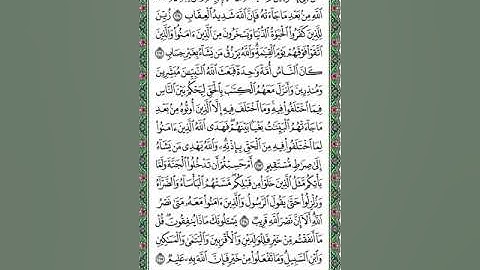 ٱللَّهِ مِنۢ بَعْدِ مَا جَآءَتْهُ فَإِنَّ ٱللَّهَ شَدِيدُ ٱلْعِقَابِ ٢١١ زُيِّنَ
لِلَّذِينَ كَفَرُوا۟ ٱلْحَيَوٰةُ ٱلدُّنْيَا وَيَسْخَرُونَ مِنَ ٱلَّذِينَ ءَامَنُوا۟ وَٱلَّذِينَ
ٱتَّقَوْا۟ فَوْقَهُمْ يَوْمَ ٱلْقِيَٰمَةِ وَٱللَّهُ يَرْزُقُ مَن يَشَآءُ بِغَيْرِ حِسَابٍ ٢١٢
كَانَ ٱلنَّاسُ أُمَّةً وَٰحِدَةً فَبَعَثَ ٱللَّهُ ٱلنَّبِيِّۦنَ مُبَشِّرِينَ
وَمُنذِرِينَ وَأَنزَلَ مَعَهُمُ ٱلْكِتَٰبَ بِٱلْحَقِّ لِيَحْكُمَ بَيْنَ ٱلنَّاسِ
فِيمَا ٱخْتَلَفُوا۟ فِيهِ وَمَا ٱخْتَلَفَ فِيهِ إِلَّا ٱلَّذِينَ أُوتُوهُ مِنۢ بَعْدِ
مَا جَآءَتْهُمُ ٱلْبَيِّنَٰتُ بَغْيًۢا بَيْنَهُمْ فَهَدَى ٱللَّهُ ٱلَّذِينَ ءَامَنُوا۟
لِمَا ٱخْتَلَفُوا۟ فِيهِ مِنَ ٱلْحَقِّ بِإِذْنِهِۦ وَٱللَّهُ يَهْدِى مَن يَشَآءُ
إِلَىٰ صِرَٰطٍ مُّسْتَقِيمٍ ٢١٣ أَمْ حَسِبْتُمْ أَن تَدْخُلُوا۟ ٱلْجَنَّةَ وَلَمَّا
يَأْتِكُم مَّثَلُ ٱلَّذِينَ خَلَوْا۟ مِن قَبْلِكُم مَّسَّتْهُمُ ٱلْبَأْسَآءُ وَٱلضَّرَّآءُ
وَزُلْزِلُوا۟ حَتَّىٰ يَقُولَ ٱلرَّسُولُ وَٱلَّذِينَ ءَامَنُوا۟ مَعَهُۥ مَتَىٰ نَصْرُ
ٱللَّهِ أَلَآ إِنَّ نَصْرَ ٱللَّهِ قَرِيبٌ ٢١٤ يَسْـَٔلُونَكَ مَاذَا يُنفِقُونَ قُلْ
مَآ أَنفَقْتُم مِّنْ خَيْرٍ فَلِلْوَٰلِدَيْنِ وَٱلْأَقْرَبِينَ وَٱلْيَتَٰمَىٰ وَٱلْمَسَٰكِينِ
وَٱبْنِ ٱلسَّبِيلِ وَمَا تَفْعَلُوا۟ مِنْ خَيْرٍ فَإِنَّ ٱللَّهَ بِهِۦ عَلِيمٌ ٢١٥